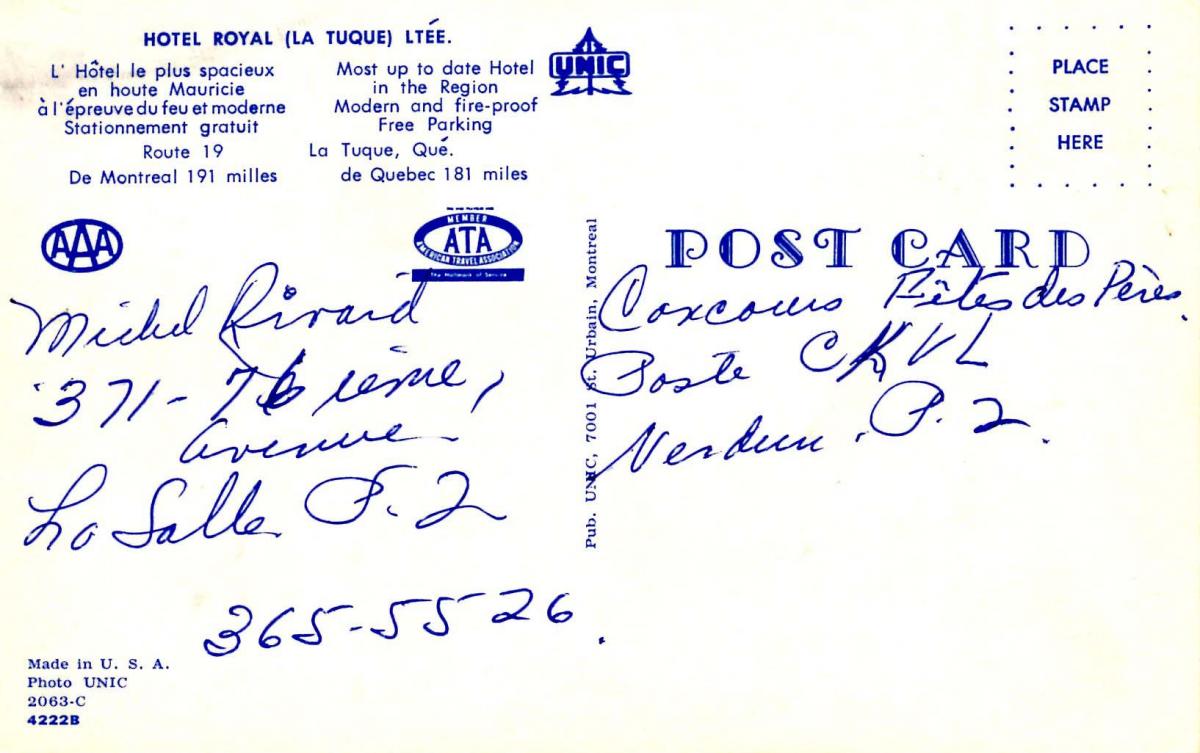 HOTEL ROYAL (LA TUQUE) LTÉE.
L' Hôtel le plus spacieux
en houte Mauricie
à l'épreuve du feu et moderne
Stationnement gratuit
Route 19
De Montreal 191 milles
Most up to date Hotel
in the Region
Modern and fire-proof
Free Parking
La Tuque, Qué.
de Quebec 181 miles
UNIC
PLACE
STAMP
HERE
AAA
MEMBER
ATA
AMERICAN TRAVEL ASSOCIATION
The Hallmark of Service
POST CARD
Michel Rivard
371-76 ième,
avenue
LaSalle P.2
365-5526.
Concours Fêtes des Pères.
Poste CKVL
Verdun. P.2.
Pub. UNIC, 7001 St. Urbain, Montreal
Made in U. S. A.
Photo UNIC
2063-C
4222B